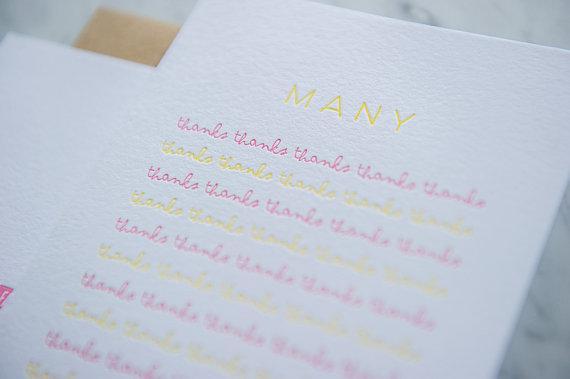 MANY
thanks thanks thanks thanks thanks
thanks thanks thanks thanks thanks
thanks thanks thanks thanks thanks
thanks thanks thanks thanks thanks
thanks thanks thanks thanks thanks
thanks thanks thanks thanks thanks
thanks thanks thanks thanks thanks
thanks thanks thanks thanks thanks
thanks thanks thanks thanks
thanks thanks